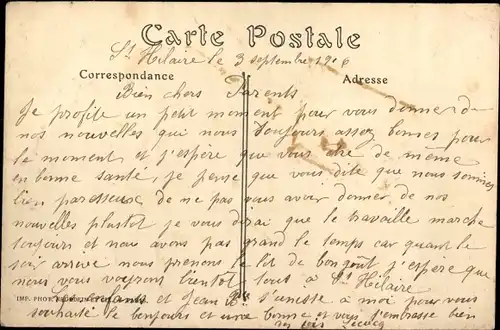 Carte Postale
St Hilaire le 3 septembre 1906
Correspondance
Adresse
Bien chers Parents
Je profite un petit moment pour vous donner de
nos nouvelles qui nous toujours assez bonnes pour
le moment et j'espère que vous etre de même
en bonne santé, je pense que vous dite que nous sommes
bien paresseuse de ne pas vous avoir donner de nos
nouvelles plustot je vous dirai que le travaille marche
toujours et nous avons pas grand le temps car quant le
soir arrive nous prenons le lit de bon goût j'espère que
nous vous voyrons bientot tous à St Hilaire
IMP. PHOT.
et Jean
à moi pour vous
souhaité le bonjours et une bonne et vous j'embrasse bien